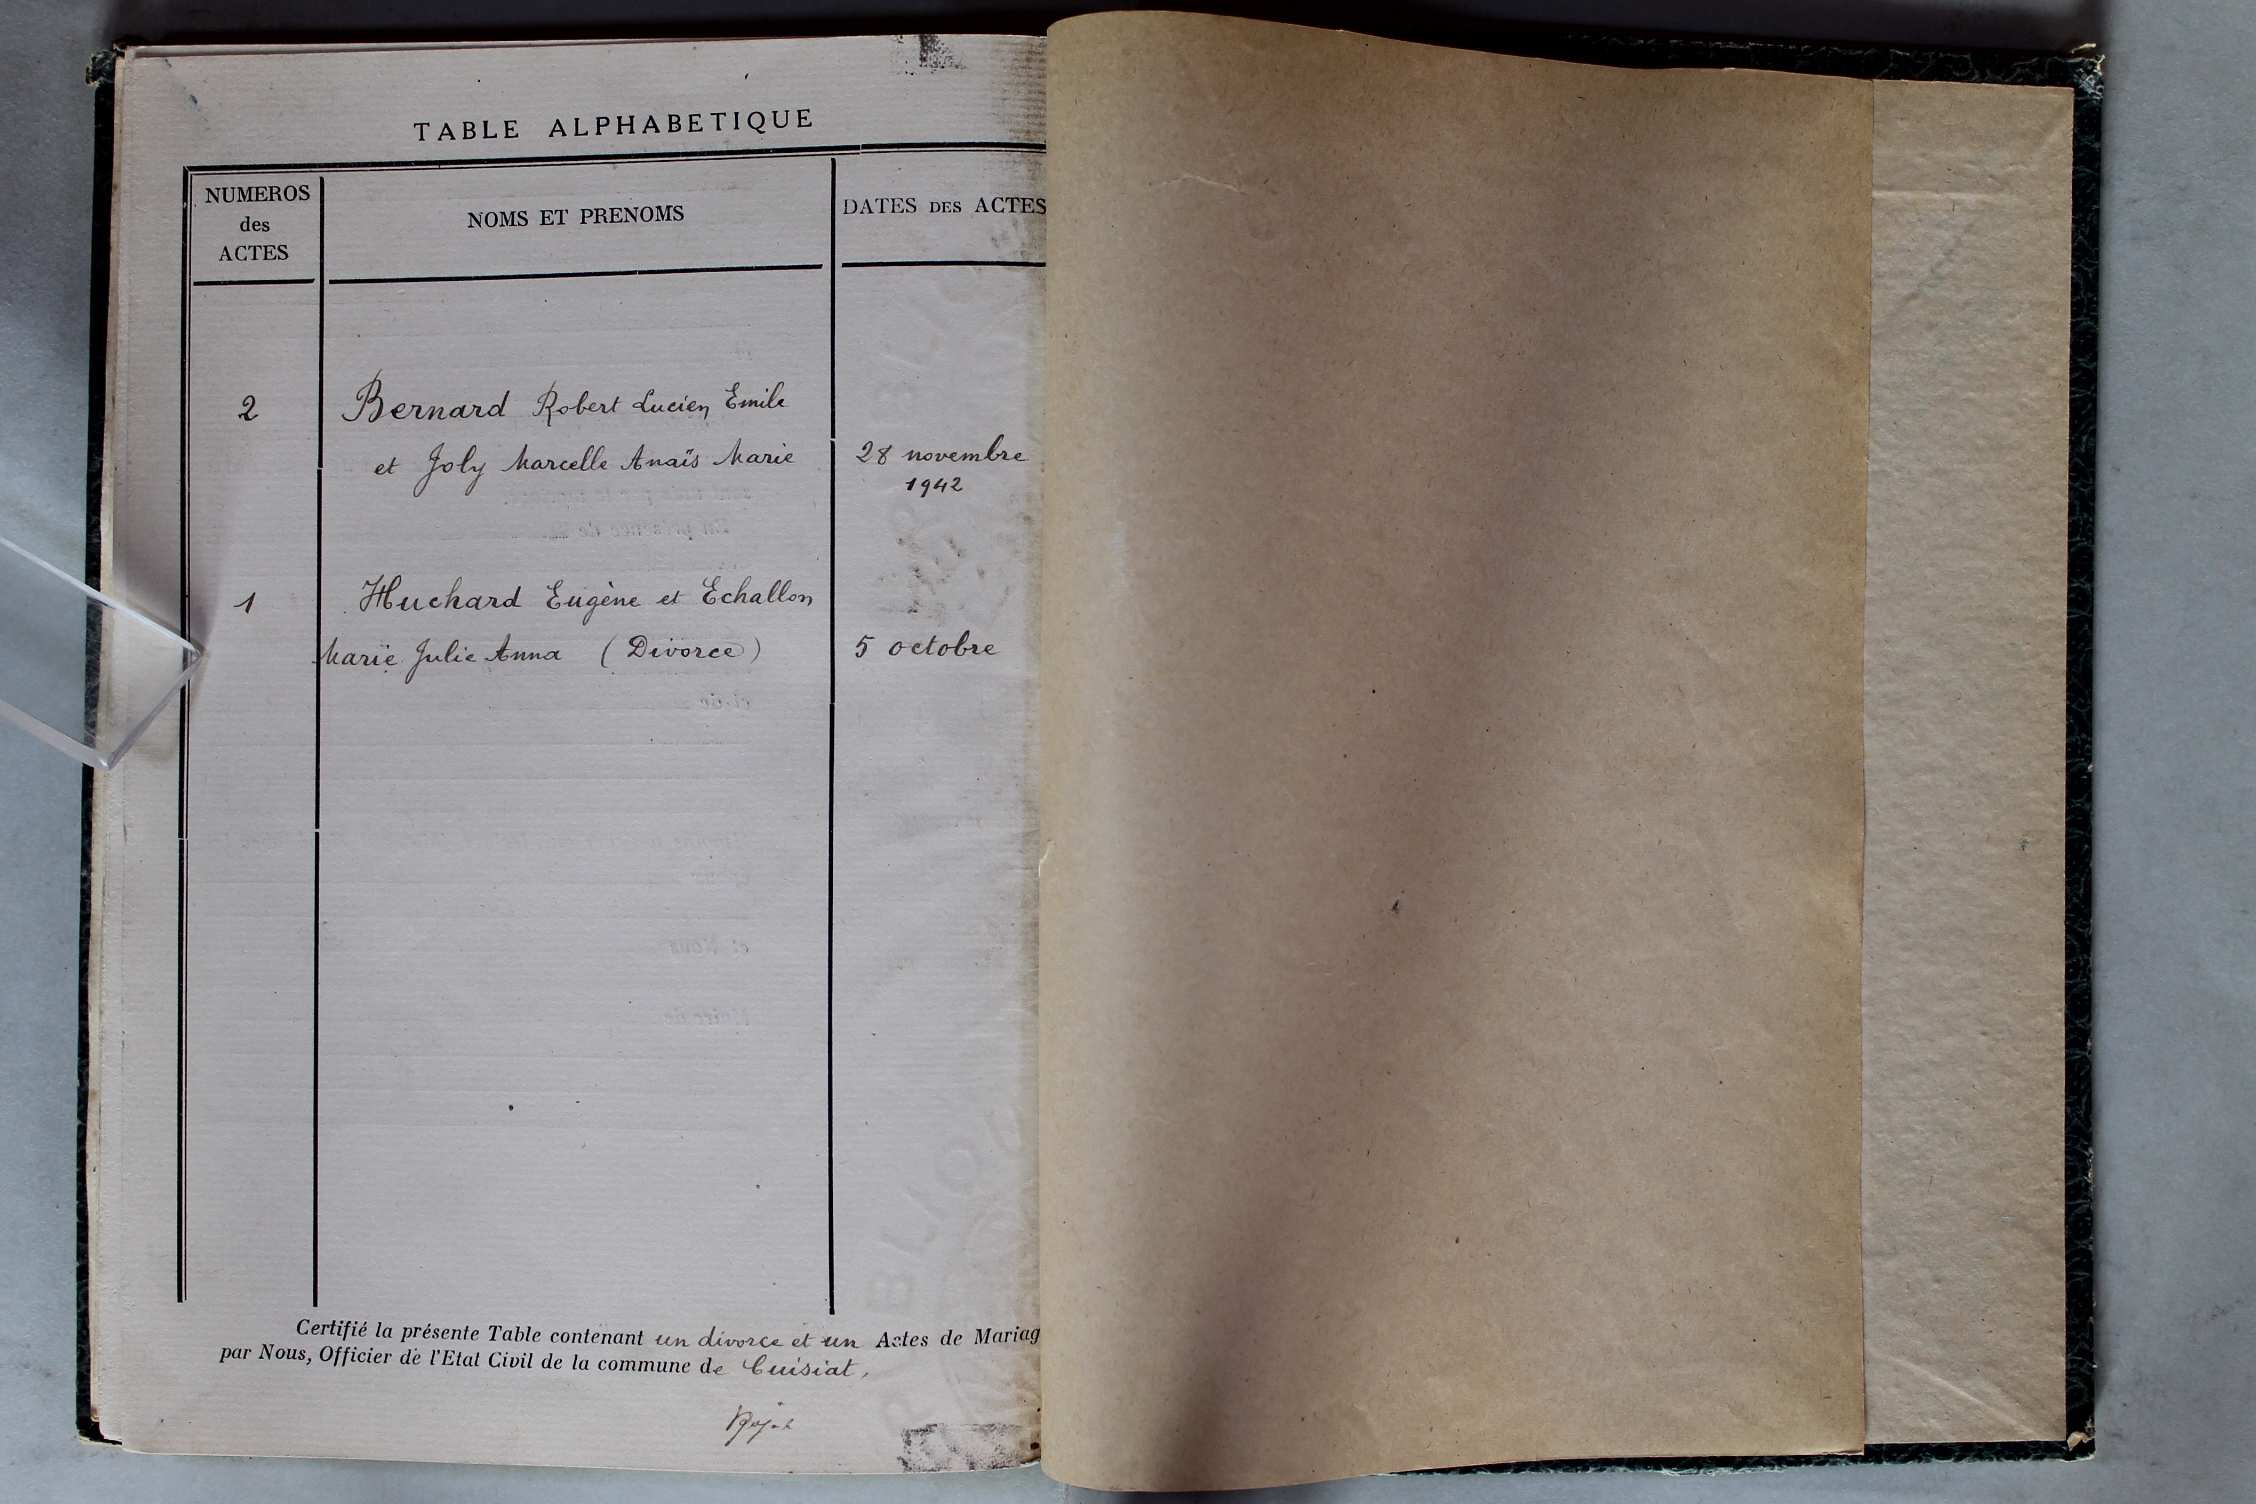 TABLE ALPHABETIQUE
NUMEROS
des
ACTES
NOMS ET PRENOMS
DATES DES ACTES
2
Bernard Robert Lucien Emile
et Joly Marcelle Anaïs Marie
28 novembre
1942
1
Huchard Eugène et Echallon
Marie Julie Anna (Divorce)
5 octobre
Certifié la présente Table contenant un divorce et un Actes de Mariag
par Nous, Officier de l'Etat Civil de la commune de Cuisiat,